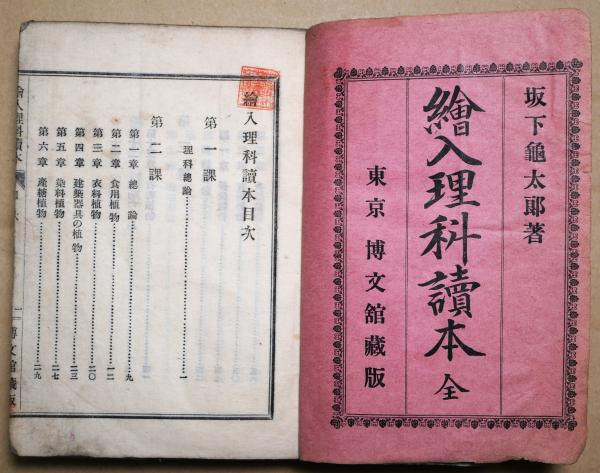 坂下龜太郎著
繪入理科讀本 全
東京 博文舘藏版
繪入理科讀本目次
第一課
理科總論……一
第二課
第一章 總論……九
第二章 食用植物……一二
第三章 衣料植物……二〇
第四章 建築器具の植物……二三
第五章 染料植物……二七
第六章 產糖植物……二九
繪入理科讀本 目次 一 博文舘藏版